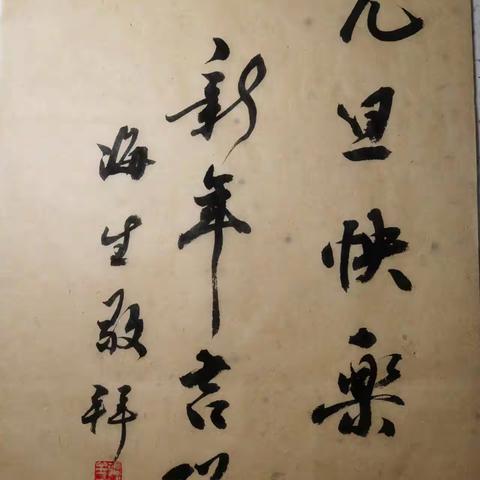 元旦快樂
新年吉
海生敬拜